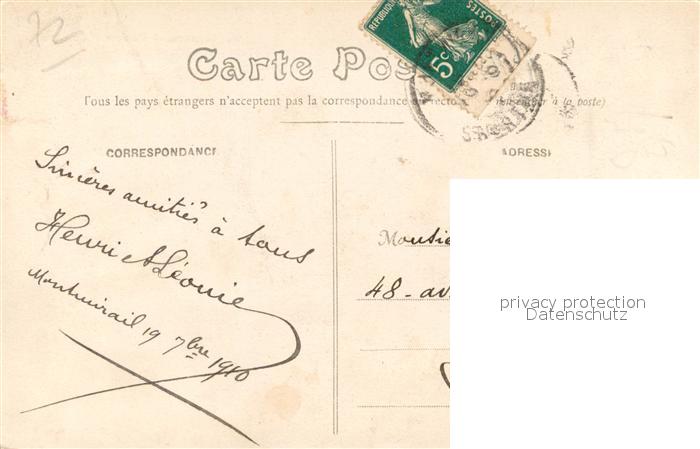 72
REPUBLIQUE
POSTES
5c
Carte Pos
Tous les pays étrangers n'acceptent pas la correspondance au recto à la poste)
CORRESPONDANCE
ADRESSE
Sincères amitiés à tous
Henri et Léonie
Montmirail 19 7bre 1910
Monsie
48 - av
privacy protection
Datenschutz